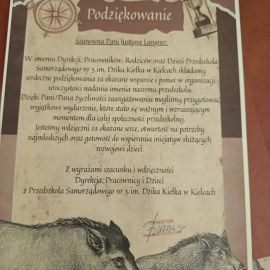 Podziękowanie
Szanowna Pani Justyna Langner,
W imieniu Dyrekcji, Pracowników, Rodziców oraz Dzieci Przedszkola
Samorządowego nr 5 im. Dzika Kiełka w Kielcach składamy
serdeczne podziękowania za okazane wsparcie i pomoc w organizacji
uroczystości nadania imienia naszemu przedszkolu.
Dzięki Pani/Pana życzliwości zaangażowaniu mogliśmy przygotować
wyjątkowe wydarzenie, które stało się ważnym i wzruszającym
momentem dla całej społeczności przedszkolnej.
Jesteśmy wdzięczni za okazane serce, otwartość na potrzeby
najmłodszych oraz gotowość do wspierania inicjatyw służących
rozwojowi dzieci.
Z wyrazami szacunku i wdzięczności
Dyrekcja, Pracownicy i Dzieci
z Przedszkola Samorządowego nr 5 im. Dzika Kiełka w Kielcach